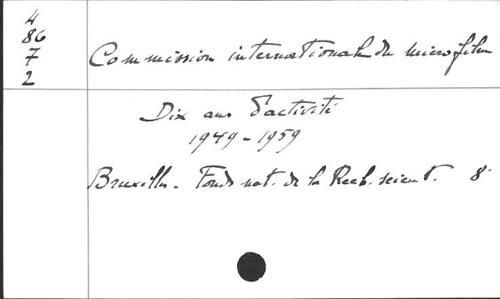 4
86
7
2
Commission internationale du microfilm
Dix ans d'activité
1949-1959
Bruxelles. Fonds nat. de la Rech. scient. 8°